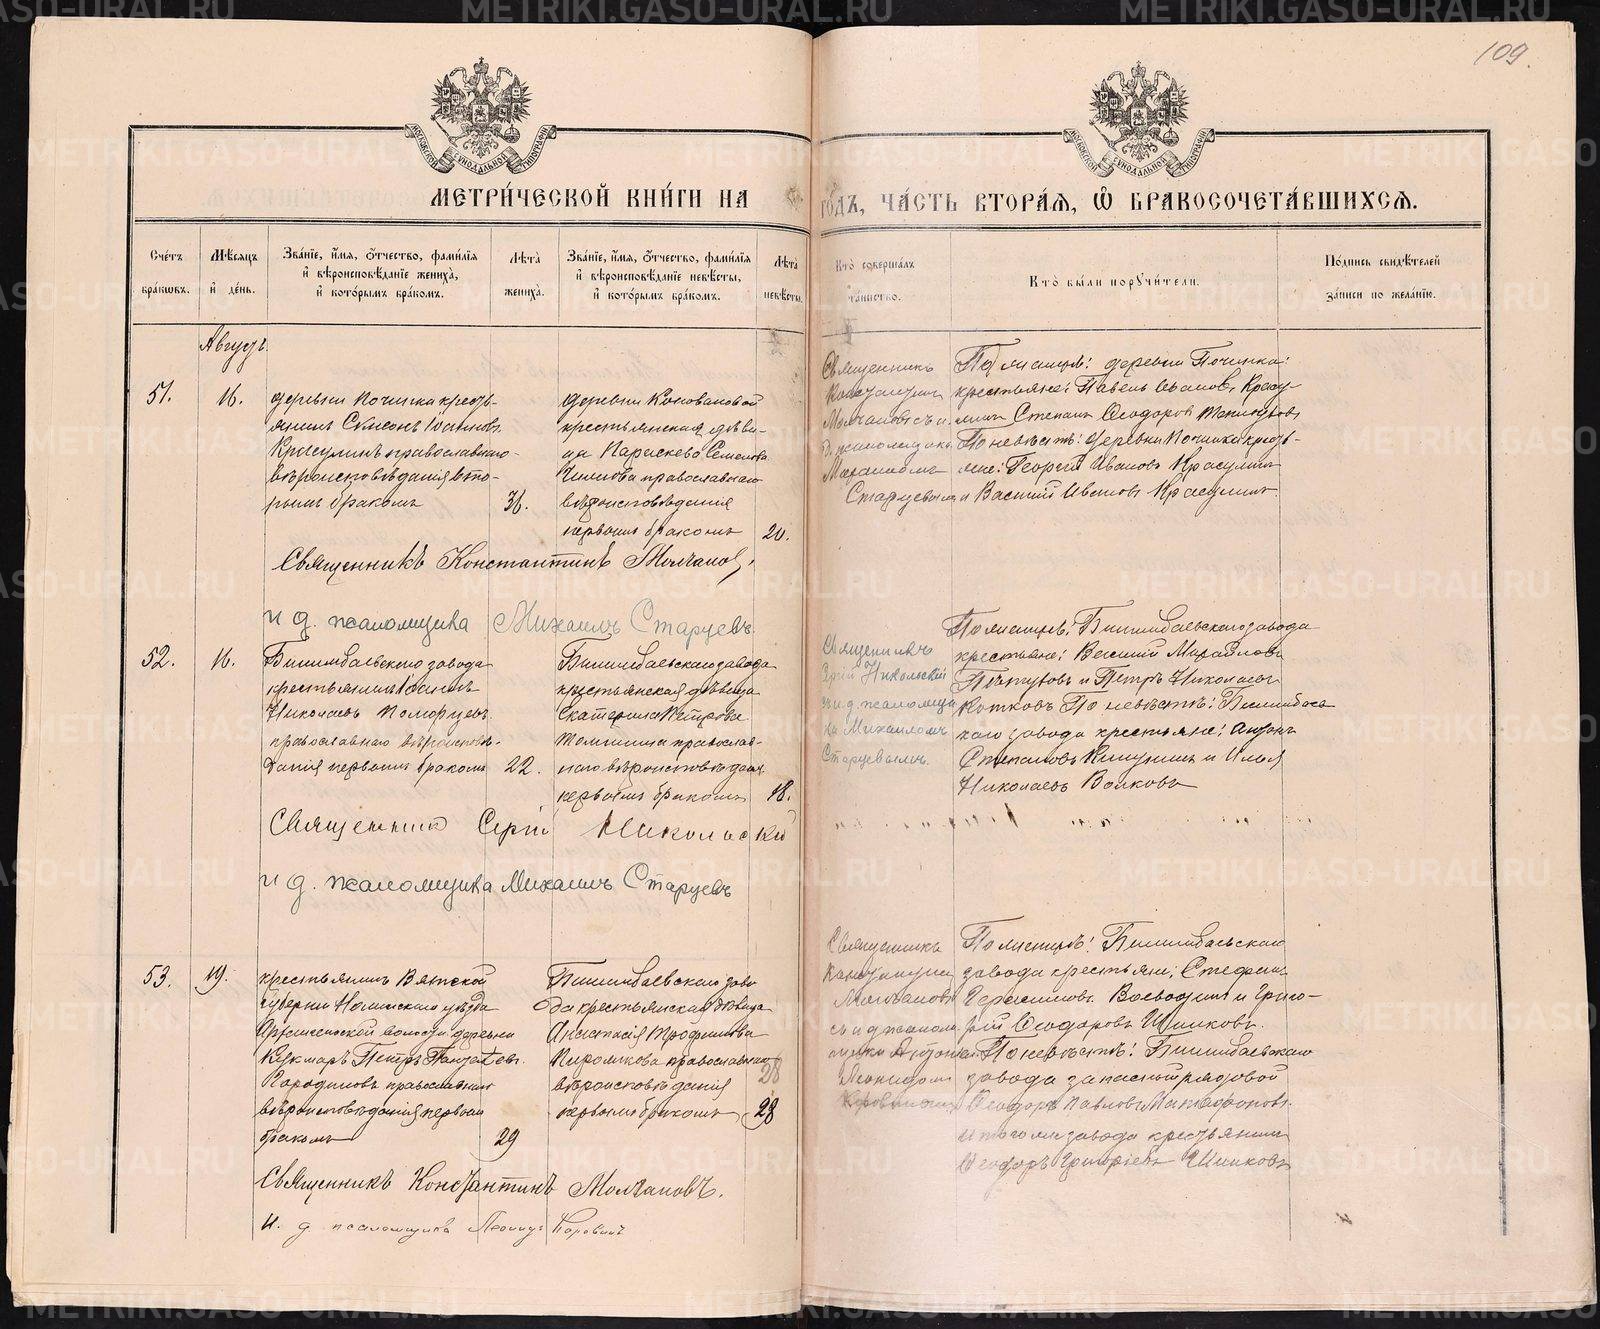 109.
МЕТРИ́ЧЕСКОЙ КНИ́ГИ НА
ГОДЪ, ЧА́СТЬ ВТОРА́Я, Ѿ БРАКОСОЧЕТА́ВШИХСЯ.
Сче́тъ бра́ковъ.
Мѣ́сяцъ и де́нь.
Зва́ніе, и́мя, о́тчество, фами́лія и вѣроисповѣ́даніе жениха́, и кото́рымъ бра́комъ.
Лѣта̀ жениха̀.
Зва́ніе, и́мя, о́тчество, фами́лія и вѣроисповѣ́даніе невѣ́сты, и кото́рымъ бра́комъ.
Лѣта̀ невѣ́сты.
Кто̀ соверша́лъ таинство.
Кто̀ бы́ли поручи́тели.
По́дпись свидѣ́телей за́писи по жела́нію.
Августъ.
51.
16.
деревни Починка кресть-
янинъ Сѵмеонъ Іоанновъ
Красулинъ православнаго
вѣроисповѣданія вто-
рымъ бракомъ
36.
деревни Коноваловой
крестьянская дѣви-
ца Параскева Семенова
православнаго
вѣроисповѣданія
первымъ бракомъ
20.
Священникъ
Константинъ
Молчановъ съ и.
д. псаломщика
Михаиломъ
Старцевымъ
По женихѣ: деревни Починка
крестьяне: Павелъ Ивановъ Красу-
линъ Степанъ Ѳеодоровъ
По невѣстѣ: деревни Починка кресть-
яне: Георгій Ивановъ Красулинъ
и Василій Ивановъ Красулинъ.
Священникъ Константинъ Молчановъ,
и д. псаломщика Михаилъ Старцевъ.
52.
16.
Билимбаевскаго завода
крестьянинъ Іоаннъ
Николаевъ Поморцевъ
православнаго вѣроисповѣ-
данія первымъ бракомъ
22.
Билимбаевскаго завода
крестьянская дѣвица
Екатерина Петрова
православ-
наго вѣроисповѣданія
первымъ бракомъ
18.
Священникъ
Сергій Никольскій
съ и д. псаломщи
ка Михаиломъ
Старцевымъ.
По женихѣ: Билимбаевскаго завода
крестьяне: Василій Михайловъ
и Петръ Николаевъ
Котковъ По невѣстѣ: Билимбаевс
каго завода крестьяне: Антонъ
Степановъ и Илья
Николаевъ Волковъ
Священникъ Сергій Никольскій
и д. псаломщика Михаилъ Старцевъ
53.
19.
крестьянинъ Вятской
губерніи Нолинскаго уѣзда
волости деревни
Кукмаръ Петръ Пантелеевъ
Городиловъ православнаго
вѣроисповѣданія первымъ
бракомъ
29
Билимбаевскаго заво
да крестьянская дѣвица
Анастасія Трофимова
православнаго
вѣроисповѣданія
первымъ бракомъ
28
28
Священникъ
Константинъ
Молчановъ
съ и д псалом
щика
Леонидомъ
Коровинымъ
По женихѣ: Билимбаевскаго
завода крестьяне: Стефанъ
Герасимовъ Воеводинъ и Григо-
рій Ѳеодоровъ Шишковъ.
По невѣстѣ: Билимбаевскаго
завода запасный рядовой
Ѳеодоръ Павловъ
и того же завода крестьянинъ
Ѳеодоръ Григорьевъ Шишковъ
Священникъ Константинъ Молчановъ.
И. д. псаломщика Леонидъ Коровинъ